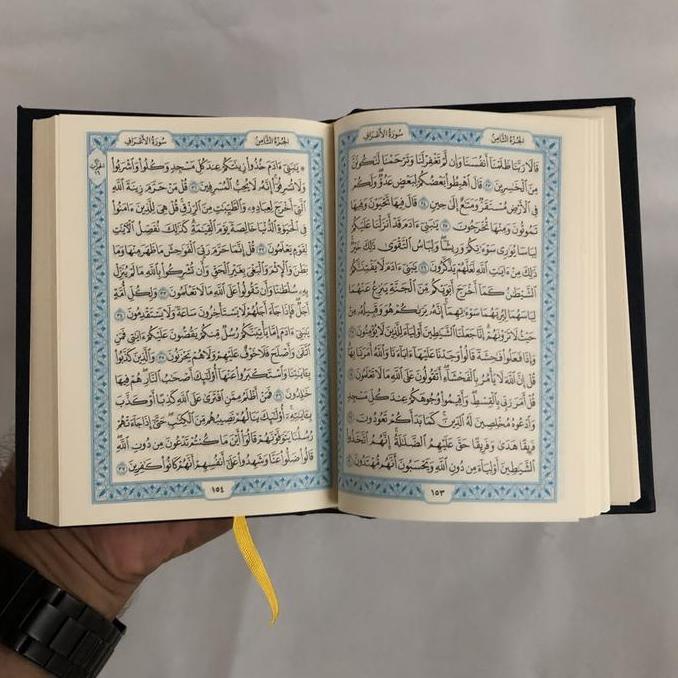 الجُزْءُ الثَّامِنُ سُورَةُ الأَعْرَافِ
قَالَا رَبَّنَا ظَلَمْنَآ أَنفُسَنَا وَإِن لَّمْ تَغْفِرْ لَنَا وَتَرْحَمْنَا لَنَكُونَنَّ
مِنَ ٱلْخَٰسِرِينَ ٢٣ قَالَ ٱهْبِطُوا۟ بَعْضُكُمْ لِبَعْضٍ عَدُوٌّ وَلَكُمْ
فِى ٱلْأَرْضِ مُسْتَقَرٌّ وَمَتَٰعٌ إِلَىٰ حِينٍ ٢٤ قَالَ فِيهَا تَحْيَوْنَ وَفِيهَا
تَمُوتُونَ وَمِنْهَا تُخْرَجُونَ ٢٥ يَٰبَنِىٓ ءَادَمَ قَدْ أَنزَلْنَا عَلَيْكُمْ
لِبَاسًا يُوَٰرِى سَوْءَٰتِكُمْ وَرِيشًا ۖ وَلِبَاسُ ٱلتَّقْوَىٰ ذَٰلِكَ خَيْرٌ ۚ
ذَٰلِكَ مِنْ ءَايَٰتِ ٱللَّهِ لَعَلَّهُمْ يَذَّكَّرُونَ ٢٦ يَٰبَنِىٓ ءَادَمَ لَا يَفْتِنَنَّكُمُ
ٱلشَّيْطَٰنُ كَمَآ أَخْرَجَ أَبَوَيْكُم مِّنَ ٱلْجَنَّةِ يَنزِعُ عَنْهُمَا
لِبَاسَهُمَا لِيُرِيَهُمَا سَوْءَٰتِهِمَآ ۗ إِنَّهُۥ يَرَىٰكُمْ هُوَ وَقَبِيلُهُۥ مِنْ
حَيْثُ لَا تَرَوْنَهُمْ ۗ إِنَّا جَعَلْنَا ٱلشَّيَٰطِينَ أَوْلِيَآءَ لِلَّذِينَ لَا يُؤْمِنُونَ ٢٧
وَإِذَا فَعَلُوا۟ فَٰحِشَةً قَالُوا۟ وَجَدْنَا عَلَيْهَآ ءَابَآءَنَا وَٱللَّهُ أَمَرَنَا بِهَا ۗ
قُلْ إِنَّ ٱللَّهَ لَا يَأْمُرُ بِٱلْفَحْشَآءِ ۖ أَتَقُولُونَ عَلَى ٱللَّهِ مَا لَا تَعْلَمُونَ ٢٨
قُلْ أَمَرَ رَبِّى بِٱلْقِسْطِ ۖ وَأَقِيمُوا۟ وُجُوهَكُمْ عِندَ كُلِّ مَسْجِدٍ
وَٱدْعُوهُ مُخْلِصِينَ لَهُ ٱلدِّينَ ۚ كَمَا بَدَأَكُمْ تَعُودُونَ ٢٩
فَرِيقًا هَدَىٰ وَفَرِيقًا حَقَّ عَلَيْهِمُ ٱلضَّلَٰلَةُ ۗ إِنَّهُمُ ٱتَّخَذُوا۟
ٱلشَّيَٰطِينَ أَوْلِيَآءَ مِن دُونِ ٱللَّهِ وَيَحْسَبُونَ أَنَّهُم مُّهْتَدُونَ ٣٠
١٥٣
الجُزْءُ الثَّامِنُ سُورَةُ الأَعْرَافِ
۞ يَٰبَنِىٓ ءَادَمَ خُذُوا۟ زِينَتَكُمْ عِندَ كُلِّ مَسْجِدٍ وَكُلُوا۟ وَٱشْرَبُوا۟
وَلَا تُسْرِفُوٓا۟ ۚ إِنَّهُۥ لَا يُحِبُّ ٱلْمُسْرِفِينَ ٣١ قُلْ مَنْ حَرَّمَ زِينَةَ ٱللَّهِ
ٱلَّتِىٓ أَخْرَجَ لِعِبَادِهِۦ وَٱلطَّيِّبَٰتِ مِنَ ٱلرِّزْقِ ۚ قُلْ هِىَ لِلَّذِينَ ءَامَنُوا۟
فِى ٱلْحَيَوٰةِ ٱلدُّنْيَا خَالِصَةً يَوْمَ ٱلْقِيَٰمَةِ ۗ كَذَٰلِكَ نُفَصِّلُ ٱلْءَايَٰتِ
لِقَوْمٍ يَعْلَمُونَ ٣٢ قُلْ إِنَّمَا حَرَّمَ رَبِّىَ ٱلْفَوَٰحِشَ مَا ظَهَرَ مِنْهَا وَمَا
بَطَنَ وَٱلْإِثْمَ وَٱلْبَغْىَ بِغَيْرِ ٱلْحَقِّ وَأَن تُشْرِكُوا۟ بِٱللَّهِ مَا لَمْ يُنَزِّلْ
بِهِۦ سُلْطَٰنًا وَأَن تَقُولُوا۟ عَلَى ٱللَّهِ مَا لَا تَعْلَمُونَ ٣٣ وَلِكُلِّ أُمَّةٍ
أَجَلٌ ۖ فَإِذَا جَآءَ أَجَلُهُمْ لَا يَسْتَأْخِرُونَ سَاعَةً ۖ وَلَا يَسْتَقْدِمُونَ ٣٤
يَٰبَنِىٓ ءَادَمَ إِمَّا يَأْتِيَنَّكُمْ رُسُلٌ مِّنكُمْ يَقُصُّونَ عَلَيْكُمْ ءَايَٰتِى ۙ فَمَنِ
ٱتَّقَىٰ وَأَصْلَحَ فَلَا خَوْفٌ عَلَيْهِمْ وَلَا هُمْ يَحْزَنُونَ ٣٥ وَٱلَّذِينَ كَذَّبُوا۟
بِـَٔايَٰتِنَا وَٱسْتَكْبَرُوا۟ عَنْهَآ أُو۟لَٰٓئِكَ أَصْحَٰبُ ٱلنَّارِ ۖ هُمْ فِيهَا
خَٰلِدُونَ ٣٦ فَمَنْ أَظْلَمُ مِمَّنِ ٱفْتَرَىٰ عَلَى ٱللَّهِ كَذِبًا أَوْ كَذَّبَ
بِـَٔايَٰتِهِۦٓ ۚ أُو۟لَٰٓئِكَ يَنَالُهُمْ نَصِيبُهُم مِّنَ ٱلْكِتَٰبِ ۖ حَتَّىٰٓ إِذَا جَآءَتْهُمْ
رُسُلُنَا يَتَوَفَّوْنَهُمْ قَالُوٓا۟ أَيْنَ مَا كُنتُمْ تَدْعُونَ مِن دُونِ ٱللَّهِ ۖ
قَالُوا۟ ضَلُّوا۟ عَنَّا وَشَهِدُوا۟ عَلَىٰٓ أَنفُسِهِمْ أَنَّهُمْ كَانُوا۟ كَٰفِرِينَ ٣٧
١٥٤